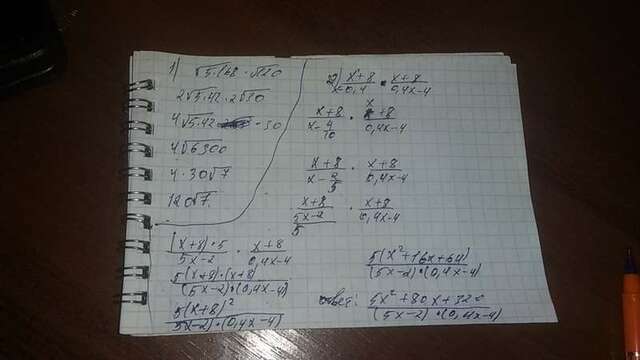 1) √5·168 · √120
2√5·42 · 2√30
4√5·42 · 30
4√6300
4·30√7
120√7
2) (x+8)/(x-0,4) · (x+8)/(0,4x-4)
(x+8)/(x-4/10) · (x+8)/(0,4x-4)
(x+8)/(x-2/5) · (x+8)/(0,4x-4)
(x+8)/((5x-2)/5) · (x+8)/(0,4x-4)
((x+8)·5)/(5x-2) · (x+8)/(0,4x-4)
5(x+8)·(x+8)/((5x-2)·(0,4x-4))
5(x+8)²/((5x-2)·(0,4x-4))
5(x²+16x+64)/((5x-2)·(0,4x-4))
Ответ: (5x²+80x+320)/((5x-2)·(0,4x-4))